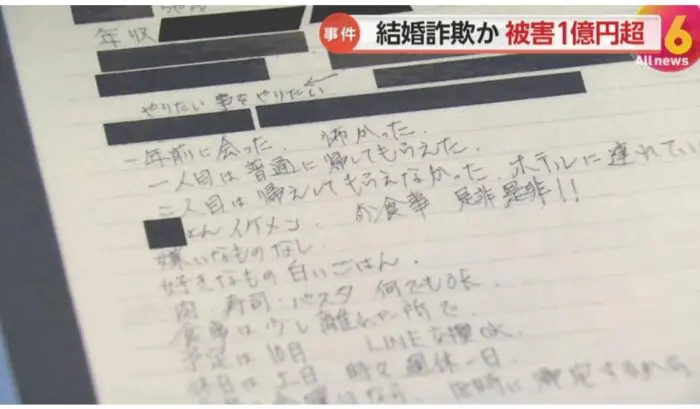 事件 結婚詐欺か 被害1億円超
All news
年収
やりたい事をやりたい
一年前に会った. 怖かった.
一人目は普通に帰してもらえた.
二人目は帰えしてもらえなかった. ホテルに連れてい
イケメン お食事 是非是非!!
嫌いなものなし.
好きなもの 白いごはん.
肉・寿司・パスタ 何でもOK.
食事は少し離れた所で.
予定は10日 LINE交換OK.
休日は土日 時々週休一日.